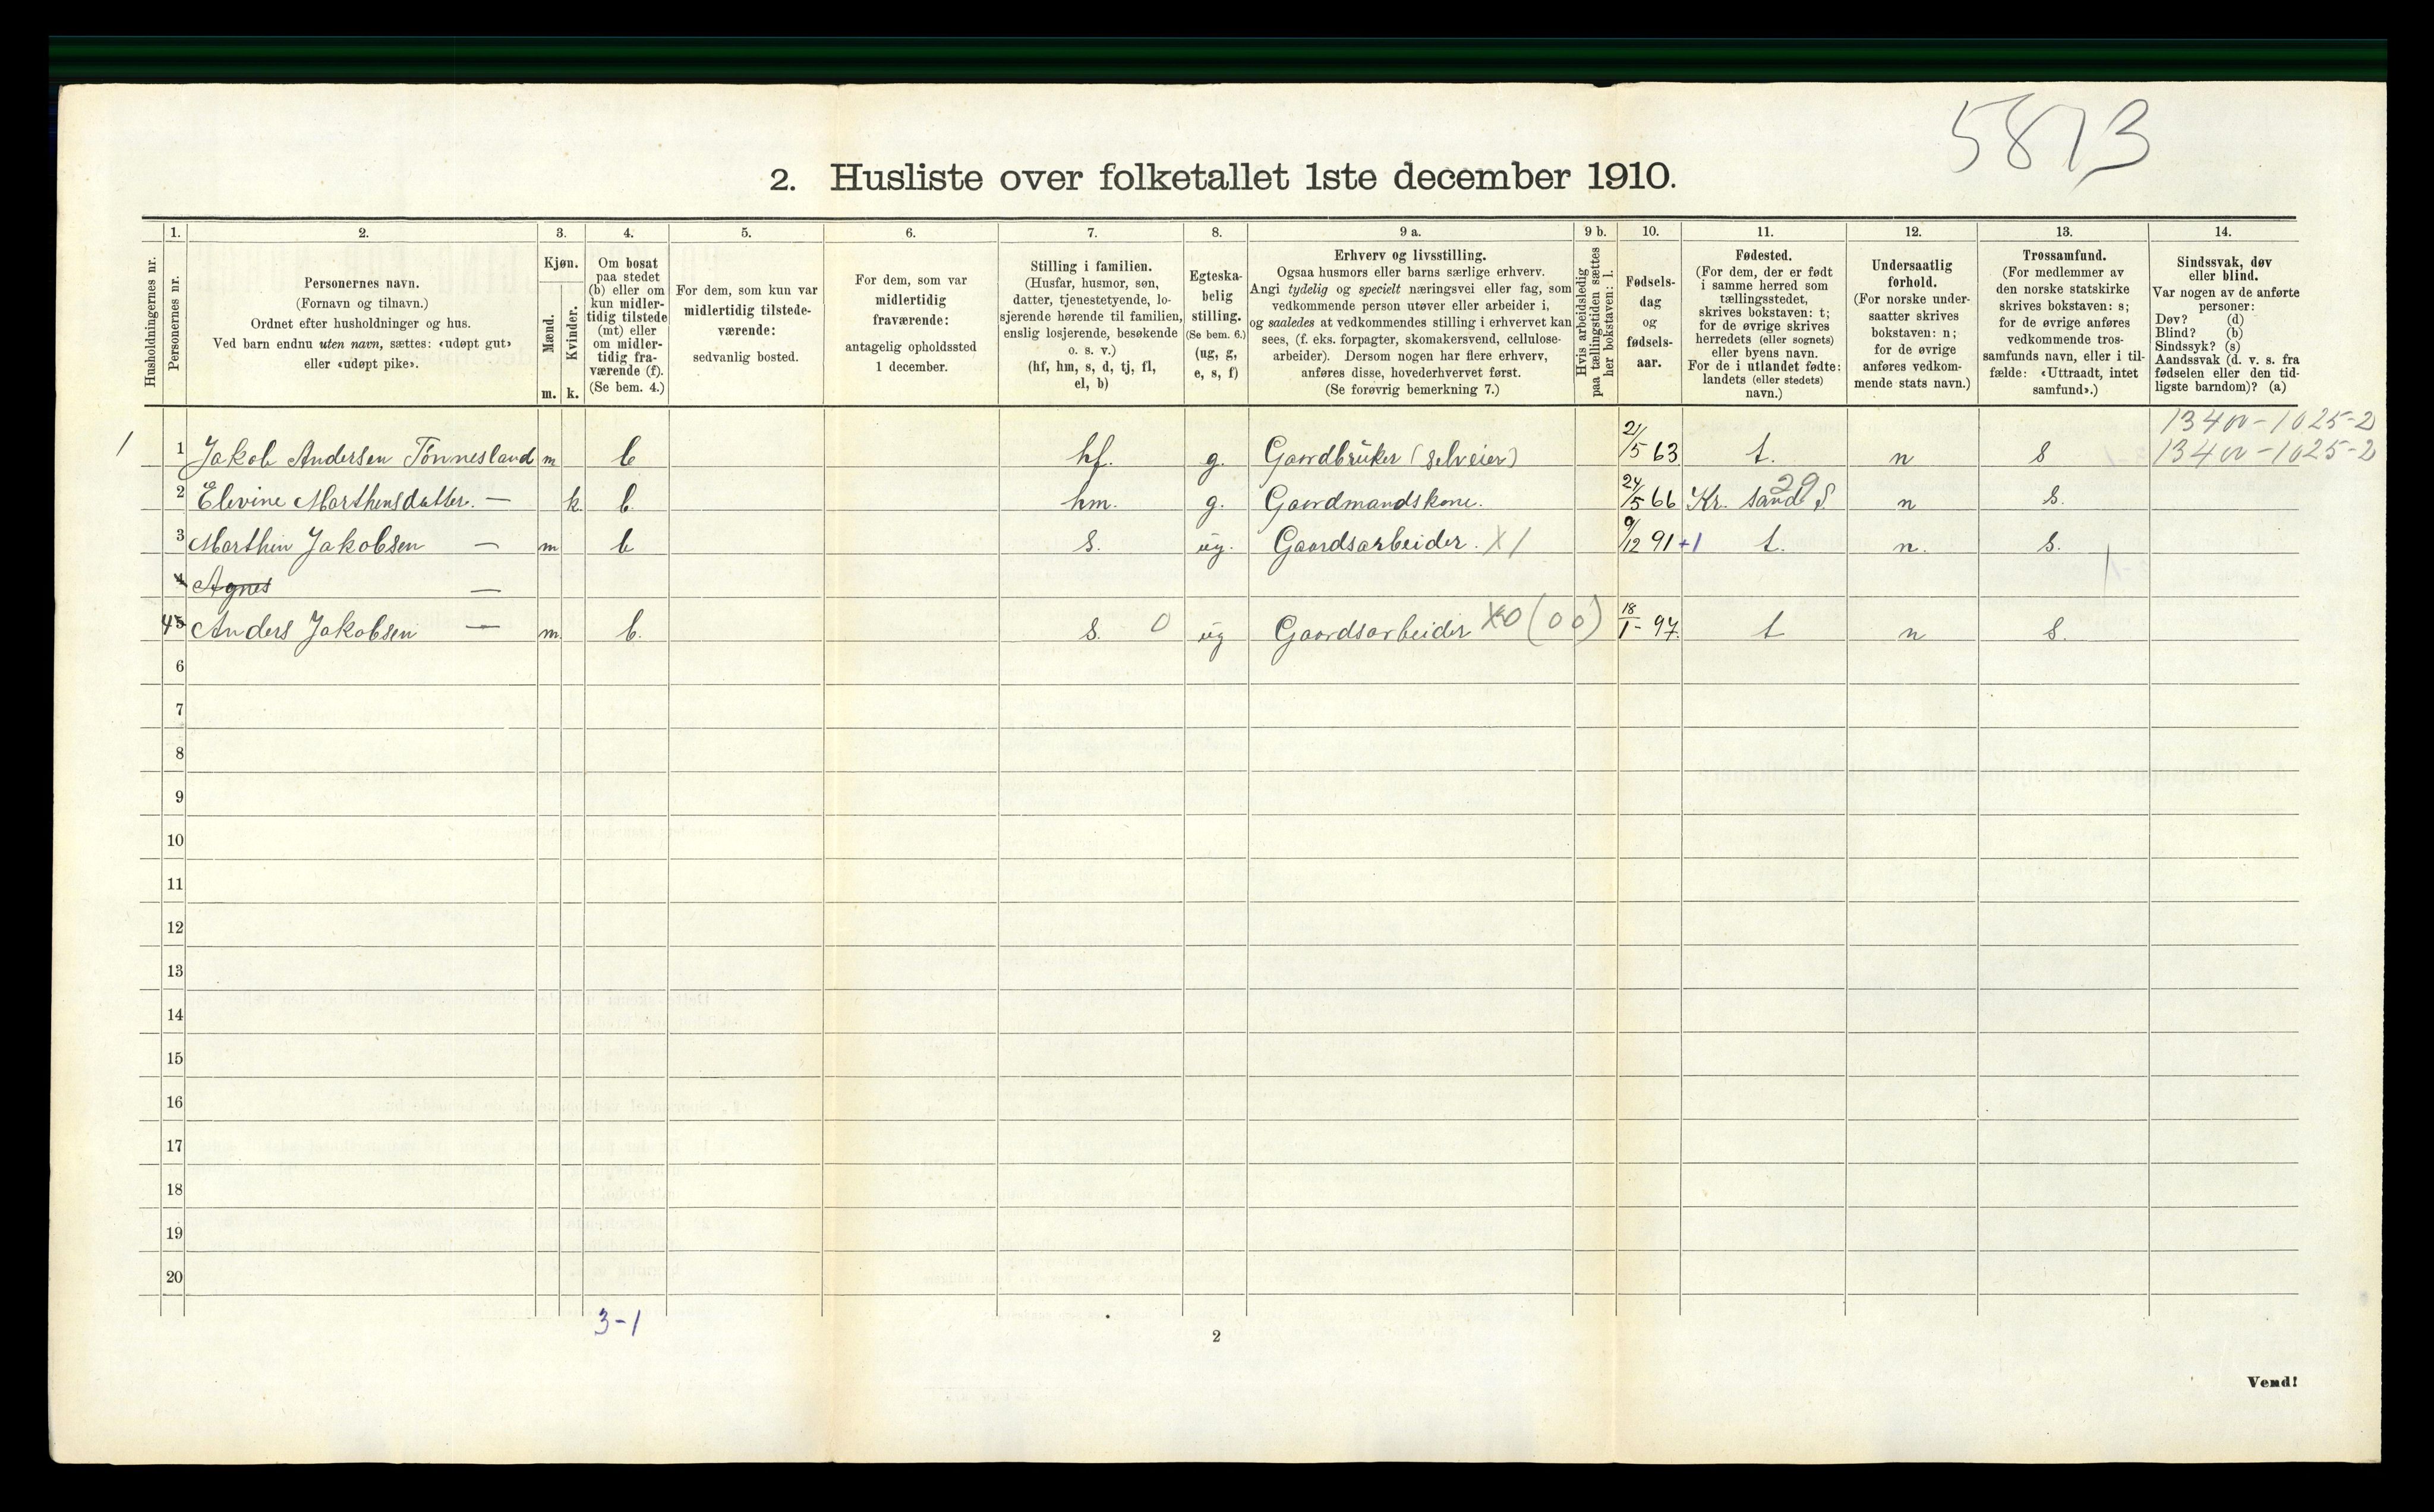 5813
2. Husliste over folketallet 1ste december 1910.
1. 2. 3. 4. 5. 6. 7. 8. 9 a. 9 b. 10. 11. 12. 13. 14.
Husholdningernes nr.
Personernes nr.
Personernes navn.
(Fornavn og tilnavn.)
Ordnet efter husholdninger og hus.
Ved barn endnu uten navn, sættes: «udøpt gut»
eller «udøpt pike».
Kjøn.
Mænd.
Kvinder.
m. k.
Om bosat
paa stedet
(b) eller om
kun midler-
tidig tilstede
(mt) eller
om midler-
tidig fra-
værende (f).
(Se bem. 4.)
For dem, som kun var
midlertidig tilstede-
værende:
sedvanlig bosted.
For dem, som var
midlertidig
fraværende:
antagelig opholdssted
1 december.
Stilling i familien.
(Husfar, husmor, søn,
datter, tjenestetyende, lo-
sjerende hørende til familien,
enslig losjerende, besøkende
o. s. v.)
(hf, hm, s, d, tj, fl,
el, b)
Egteska-
belig
stilling.
(Se bem. 6.)
(ug, g,
e, s, f)
Erhverv og livsstilling.
Ogsaa husmors eller barns særlige erhverv.
Angi tydelig og specielt næringsvei eller fag, som
vedkommende person utøver eller arbeider i,
og saaledes at vedkommendes stilling i erhvervet kan
sees, (f. eks. forpagter, skomakersvend, cellulose-
arbeider). Dersom nogen har flere erhverv,
anføres disse, hovederhvervet først.
(Se forøvrig bemerkning 7.)
Hvis arbeidsledig
paa tællingstiden sættes
her bokstaven: l.
Fødsels-
dag
og
fødsels-
aar.
Fødested.
(For dem, der er født
i samme herred som
tællingsstedet,
skrives bokstaven: t;
for de øvrige skrives
herredets (eller sognets)
eller byens navn.
For de i utlandet fødte:
landets (eller stedets)
navn.)
Undersaatlig
forhold.
(For norske under-
saatter skrives
bokstaven: n;
for de øvrige
anføres vedkom-
mende stats navn.)
Trossamfund.
(For medlemmer av
den norske statskirke
skrives bokstaven: s;
for de øvrige anføres
vedkommende tros-
samfunds navn, eller i til-
fælde: «Uttraadt, intet
samfund».)
Sindssvak, døv
eller blind.
Var nogen av de anførte
personer:
Døv? (d)
Blind? (b)
Sindssyk? (s)
Aandssvak (d. v. s. fra
fødselen eller den tid-
ligste barndom)? (a)
13400-1025-2
1 1 Jakob Andersen Tönnesland m b hf. g. Gaardbrüker (selveier) 21/5 63 t. n s 13400-1025-2
2 Elevine Marthensdatter. — k. b. hm. g. Gaardmandskone. 24/5 66 Kr. sand S. 29 n s.
3 Marthin Jakobsen — m b s. üg. Gaardsarbeider. X1 9/12 91 +1 t. n. s.
4 Agnes —
4 5 Anders Jakobsen — m. b. s. 0 üg Gaardsarbeider X0 (00) 18/1- 97. t n s.
6
7
8
9
10
11
12
13
14
15
16
17
18
19
20
3-1
2
Vend!